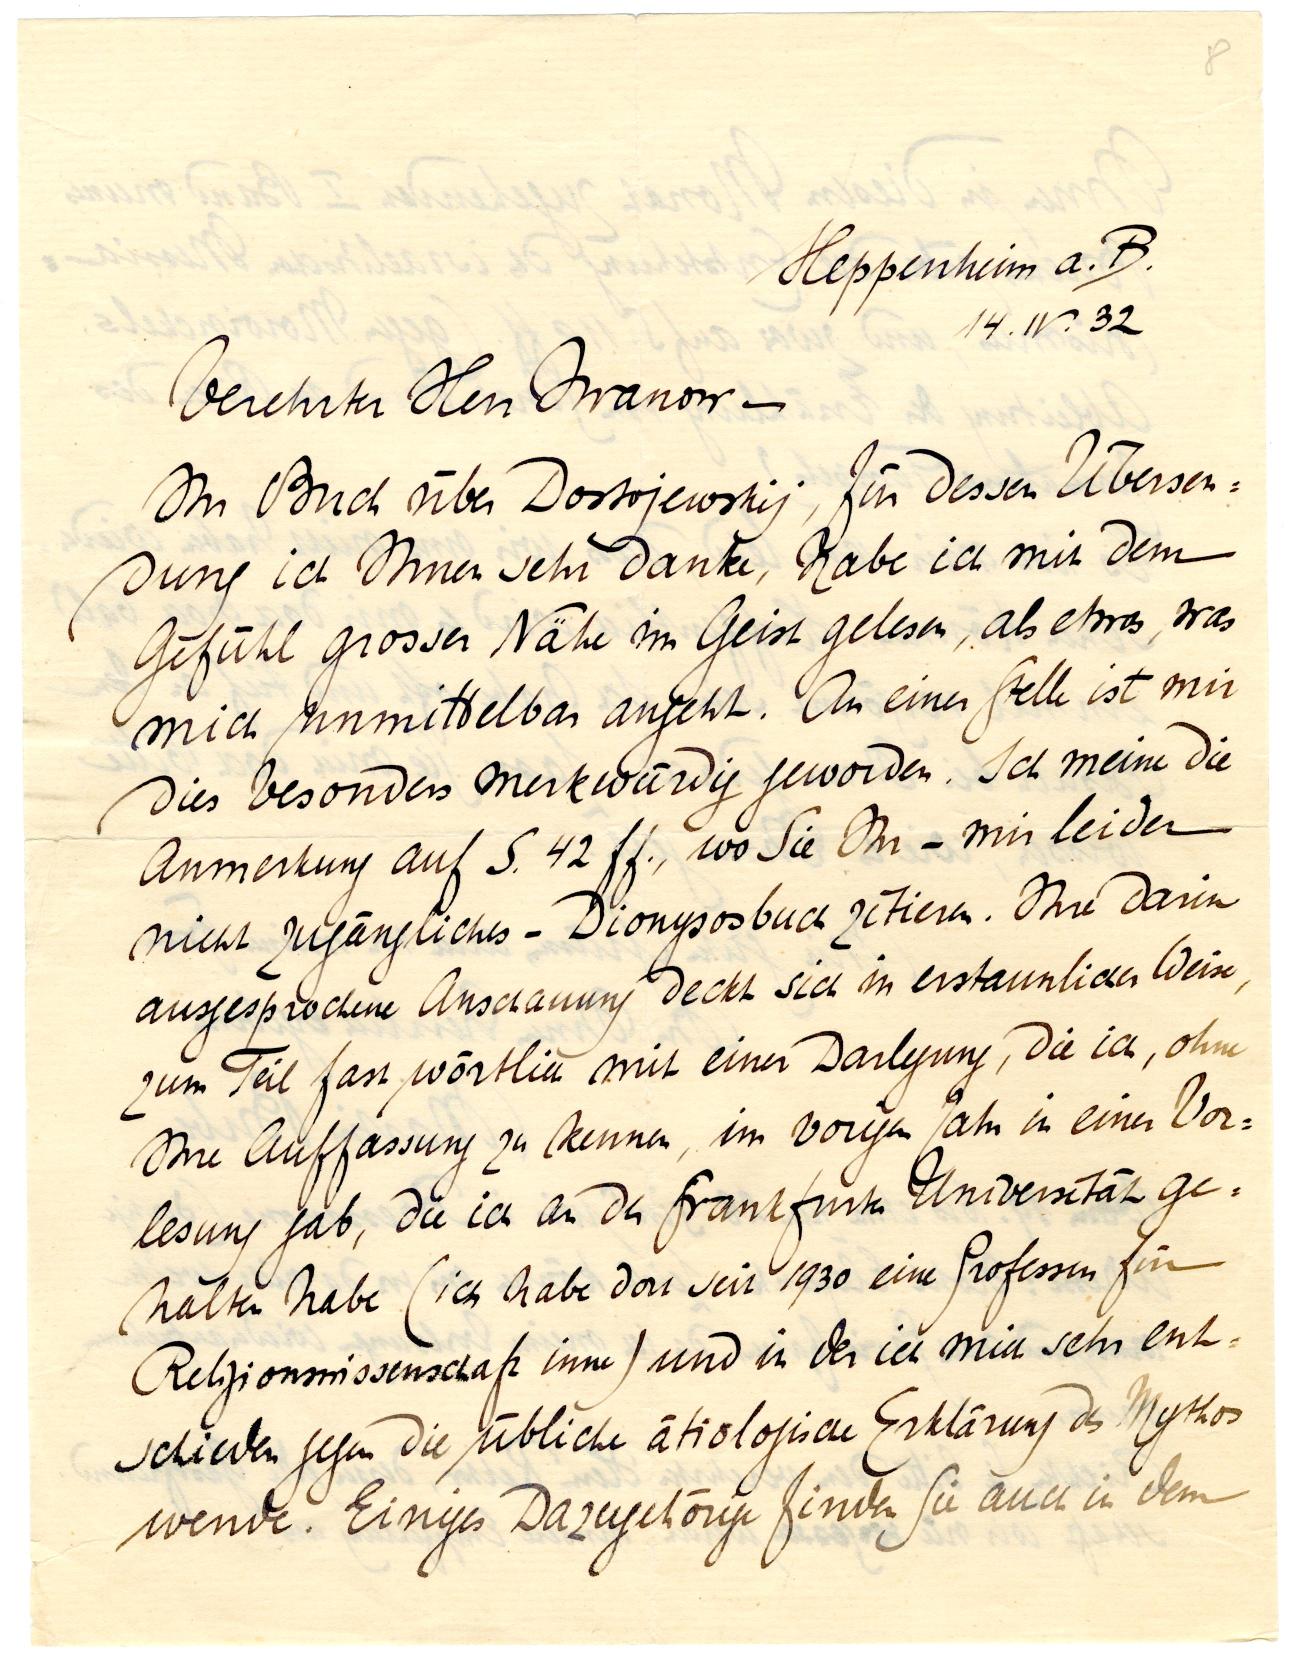 8
Heppenheim a. B.
14. IV. 32
Verehrter Herr Iwanow –
Ihr Buch über Dostojewskij, für dessen Übersen=
dung ich Ihnen sehr danke, habe ich mit dem
Gefühl grosser Nähe im Geist gelesen, als etwas, was
mich unmittelbar angeht. An einer Stelle ist mir
dies besonders merkwürdig geworden. Ich meine die
Anmerkung auf S. 42 ff., wo Sie Ihr – mir leider
nicht zugängliches – Dionysosbuch zitieren. Ihre darin
ausgesprochene Anschauung deckt sich in erstaunlicher Weise,
zum Teil fast wörtlich mit einer Darlegung, die ich, ohne
Ihre Auffassung zu kennen, im vorigen Jahr in einer Vor=
lesung gab, die ich an der Frankfurter Universität ge=
halten habe (ich habe dort seit 1930 eine Professur für
Religionswissenschaft inne) und in der ich mich sehr ent=
schieden gegen die übliche ätiologische Erklärung des Mythos
wende. Einiges Dazugehörige finden Sie auch in dem